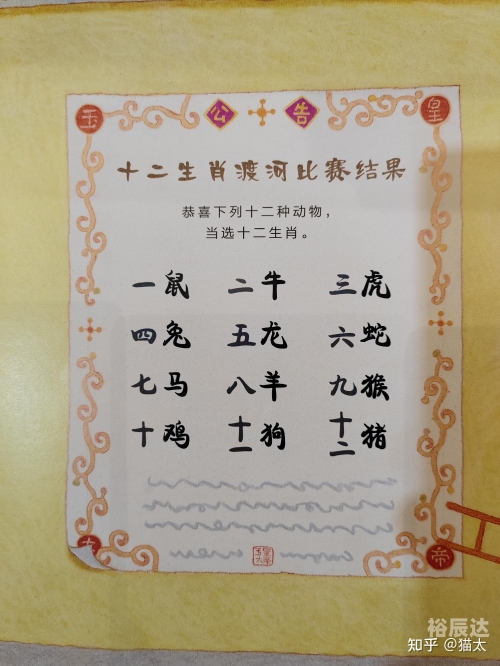 玉 公告 皇
十二生肖渡河比赛结果
恭喜下列十二种动物，
当选十二生肖。
一鼠 二牛 三虎
四兔 五龙 六蛇
七马 八羊 九猴
十鸡 十一狗 十二猪
大 帝
裕辰达
知乎 @猫太